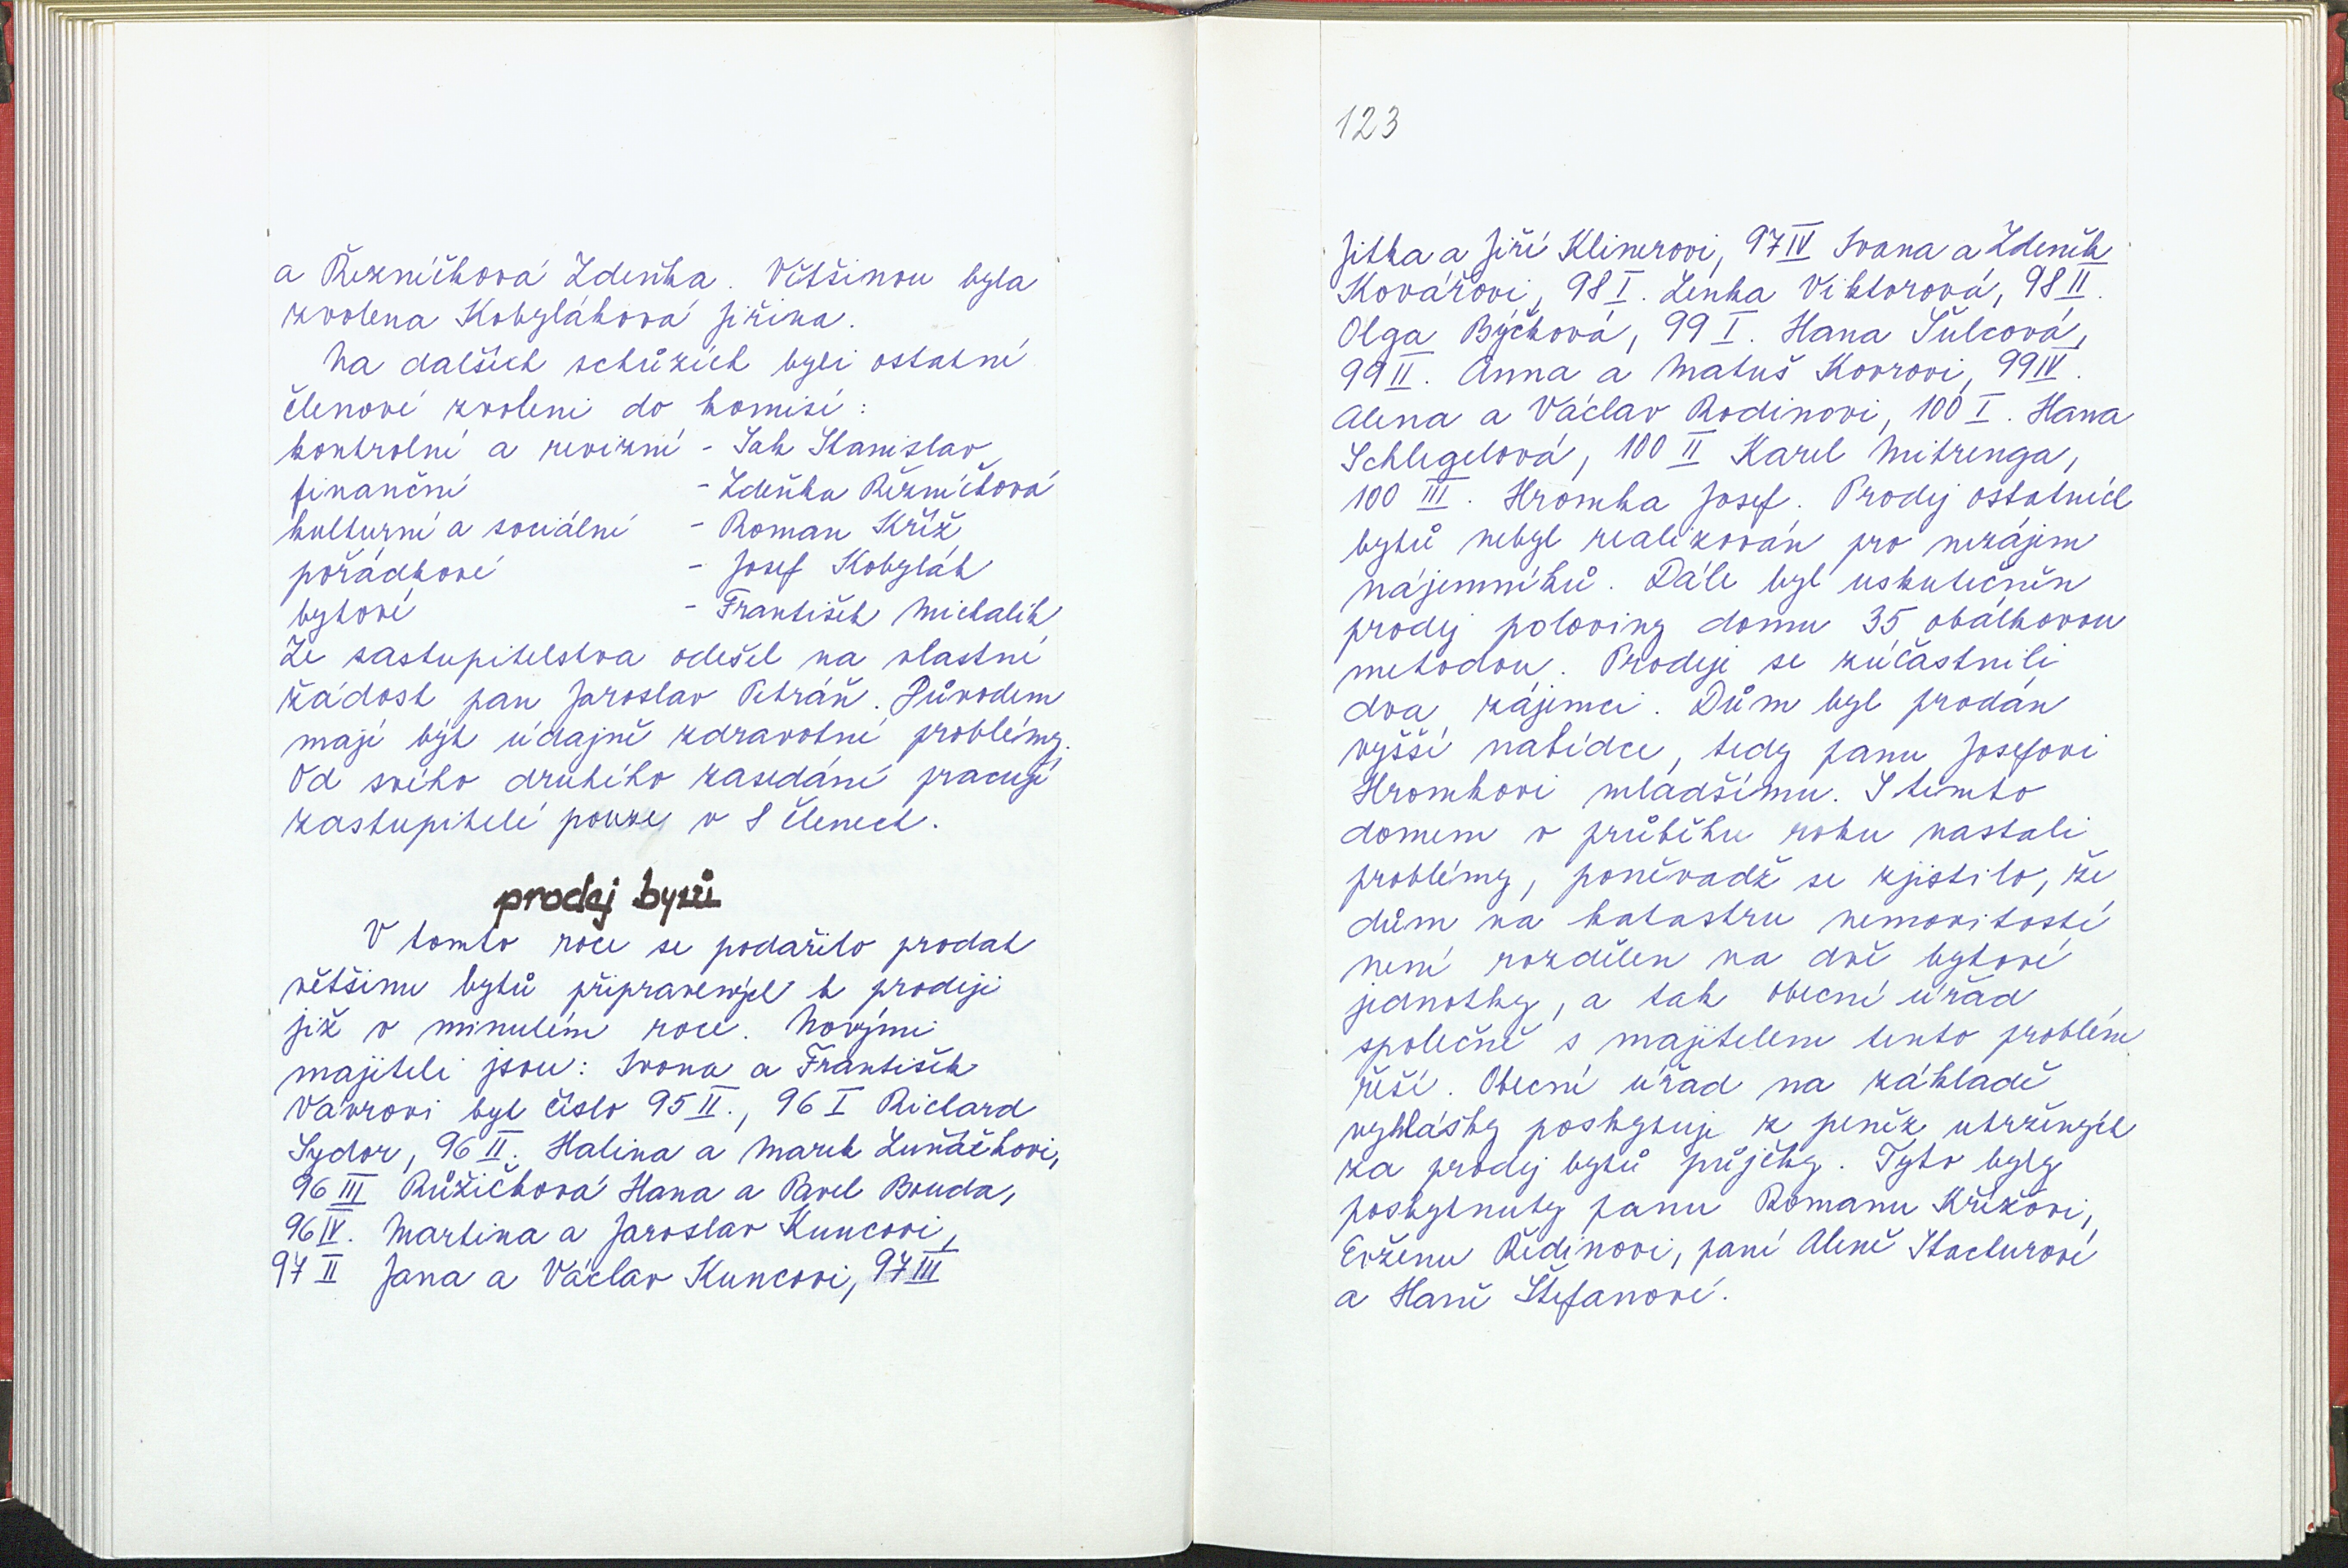 a Řezníčková Zdeňka. Většinou byla
zvolena Kobyláková Jiřina.
Na dalších schůzích byli ostatní
členové zvoleni do komisí:
kontrolní a revizní - Jak Stanislav
finanční - Zdeňka Řezníčková
kulturní a sociální - Roman Kříž
pořádkové - Josef Kobylák
bytové - František Michalik
Ze zastupitelstva odešel na vlastní
žádost pan Jaroslav Petráň. Důvodem
mají být údajně zdravotní problémy.
Od svého druhého zasedání pracují
zastupitelé pouze v 8 členech.
prodej bytů
V tomto roce se podařilo prodat
většinu bytů připravených k prodeji
již v minulém roce. Novými
majiteli jsou: Ivona a František
Vávrovi byt číslo 95 II., 96 I Richard
Sydor, 96 II. Halina a Marek Luňáčkovi,
96 III Růžičková Hana a Pavel Bouda,
96 IV. Martina a Jaroslav Kuncovi,
97 II Jana a Václav Kuncovi, 97 III
123
Jitka a Jiří Klinerovi, 97 IV Ivana a Zdeněk
Kovářovi, 98 I. Lenka Viktorová, 98 II.
Olga Býčková, 99 I. Hana Šulcová,
99 II. Anna a Matuš Kovrovi, 99 IV.
Alena a Václav Rodinovi, 100 I. Hana
Schlegelová, 100 II Karel Mitrenga,
100 III. Hromka Josef. Prodej ostatních
bytů nebyl realizován pro nezájem
nájemníků. Dále byl uskutečněn
prodej poloviny domu 35 obálkovou
metodou. Prodeje se zúčastnili
dva zájemci. Dům byl prodán
vyšší nabídce, tedy panu Josefovi
Hromkovi mladšímu. S tímto
domem v průběhu roku nastali
problémy, poněvadž se zjistilo, že
dům na katastru nemovitostí
není rozdělen na dvě bytové
jednotky, a tak obecní úřad
společně s majitelem tento problém
řeší. Obecní úřad na základě
vyhlášky poskytuje z peněz utržených
za prodej bytů půjčky. Tyto byly
poskytnuty panu Romanu Křížovi,
Evženu Ředinovi, paní Aleně Stachurové
a Haně Štefanové.